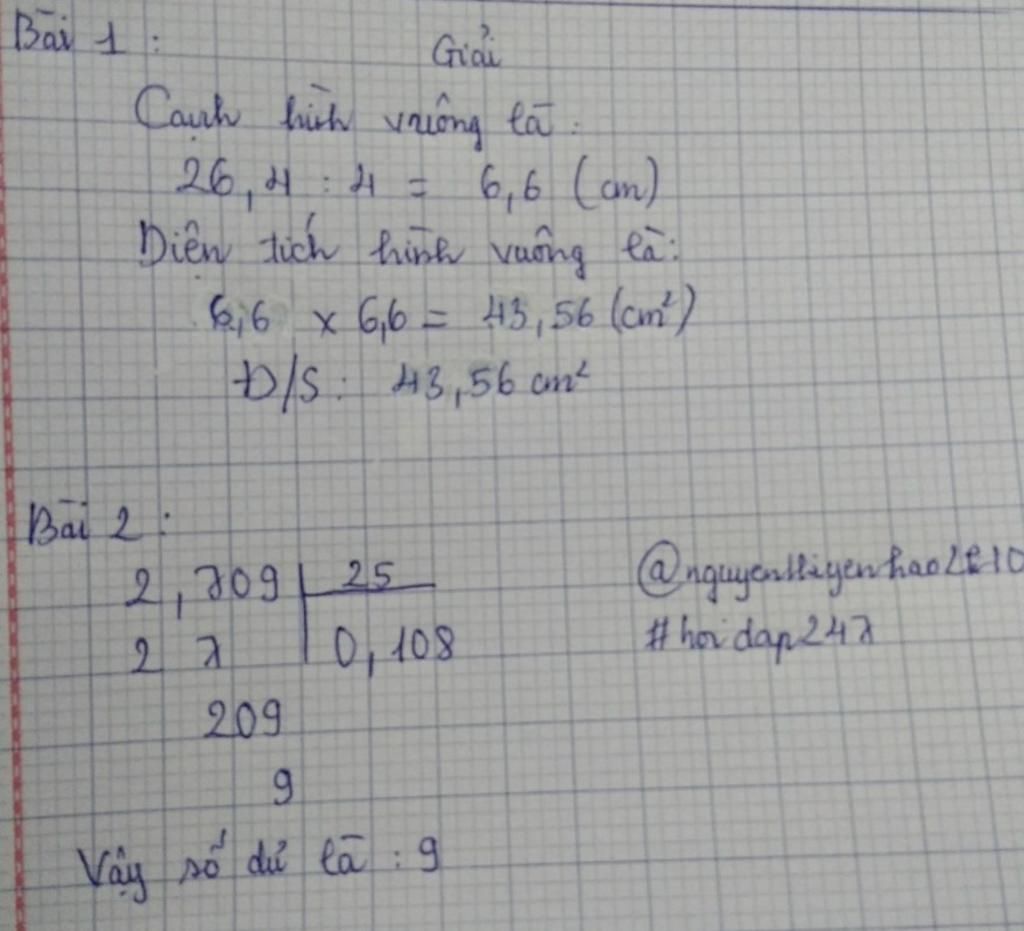 Bài 1 :
Giải
Cạnh hình vuông là :
26,4 : 4 = 6,6 (cm)
Diện tích hình vuông là:
6,6 x 6,6 = 43,56 (cm²)
Đ/S : 43,56 cm²
Bài 2 :
2,709 25
2 7 0,108
209
9
Vậy số dư là : 9
#hoidap247